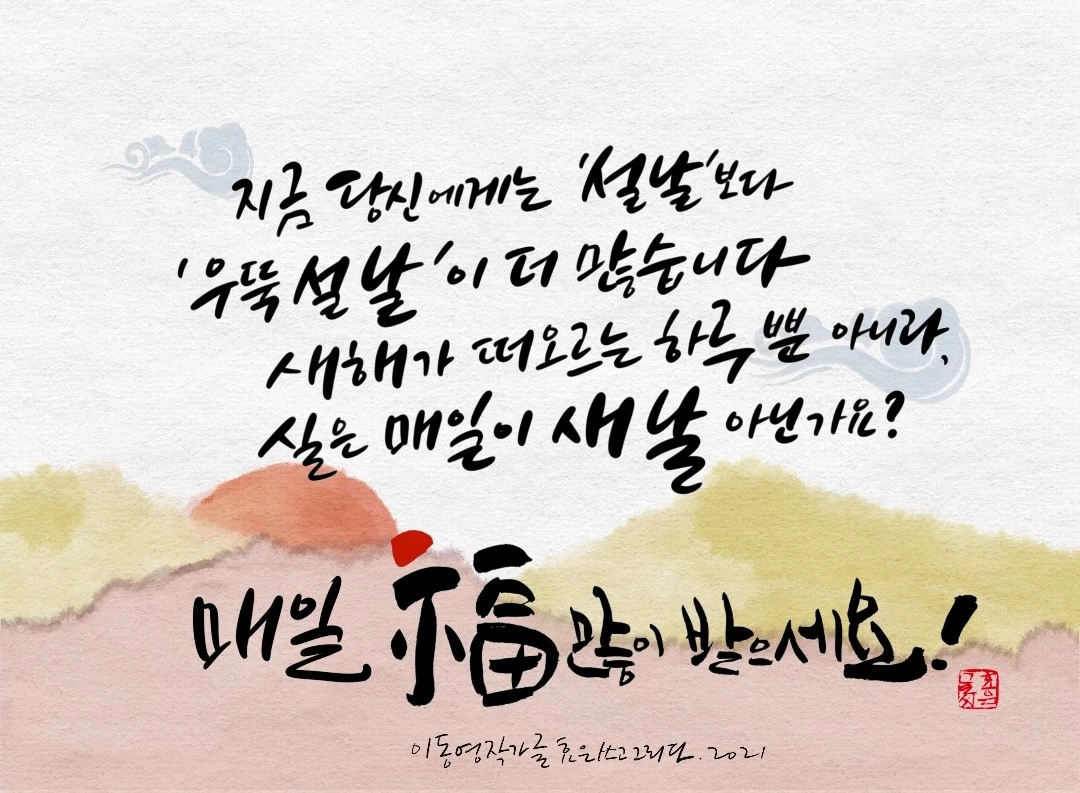 지금 당신에게는 '설날'보다
'우뚝 설 날'이 더 많습니다
새해가 떠오르는 하루 뿐 아니라,
실은 매일이 새 날 아닌가요?
매일 福 많이 받으세요!
이동영작가글 효은쓰고그리다. 2021